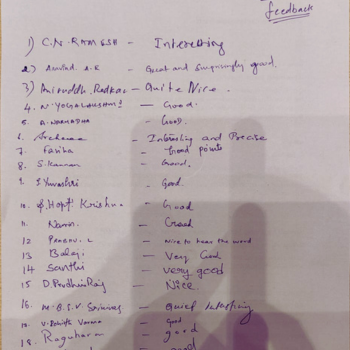 feedback
1) C.N. RAMESH - Interesting
2) Aravind. R.E - Great and Surprisingly good.
3) Aniruddh. Radkar - Quite Nice.
4. N. YOGALAKSHMI - Good.
5. A. NARMADHA - GOOD.
6. Archana - Interesting and Precise
7. - Good points
8. S. Kannan - Good.
9. - Good.
10. Hopf Krishna - Good
11. - Good
12 PRAVEEN. L - Nice to hear the word
13 Balaji - Very Good
14 Santhi - very good
15 D. Prudhvi Raj - Nice.
16. M.B.S.V Srinivas - Quiet Interesting
17. V. Rohith Varma - Good
18. Raguharan - good
good